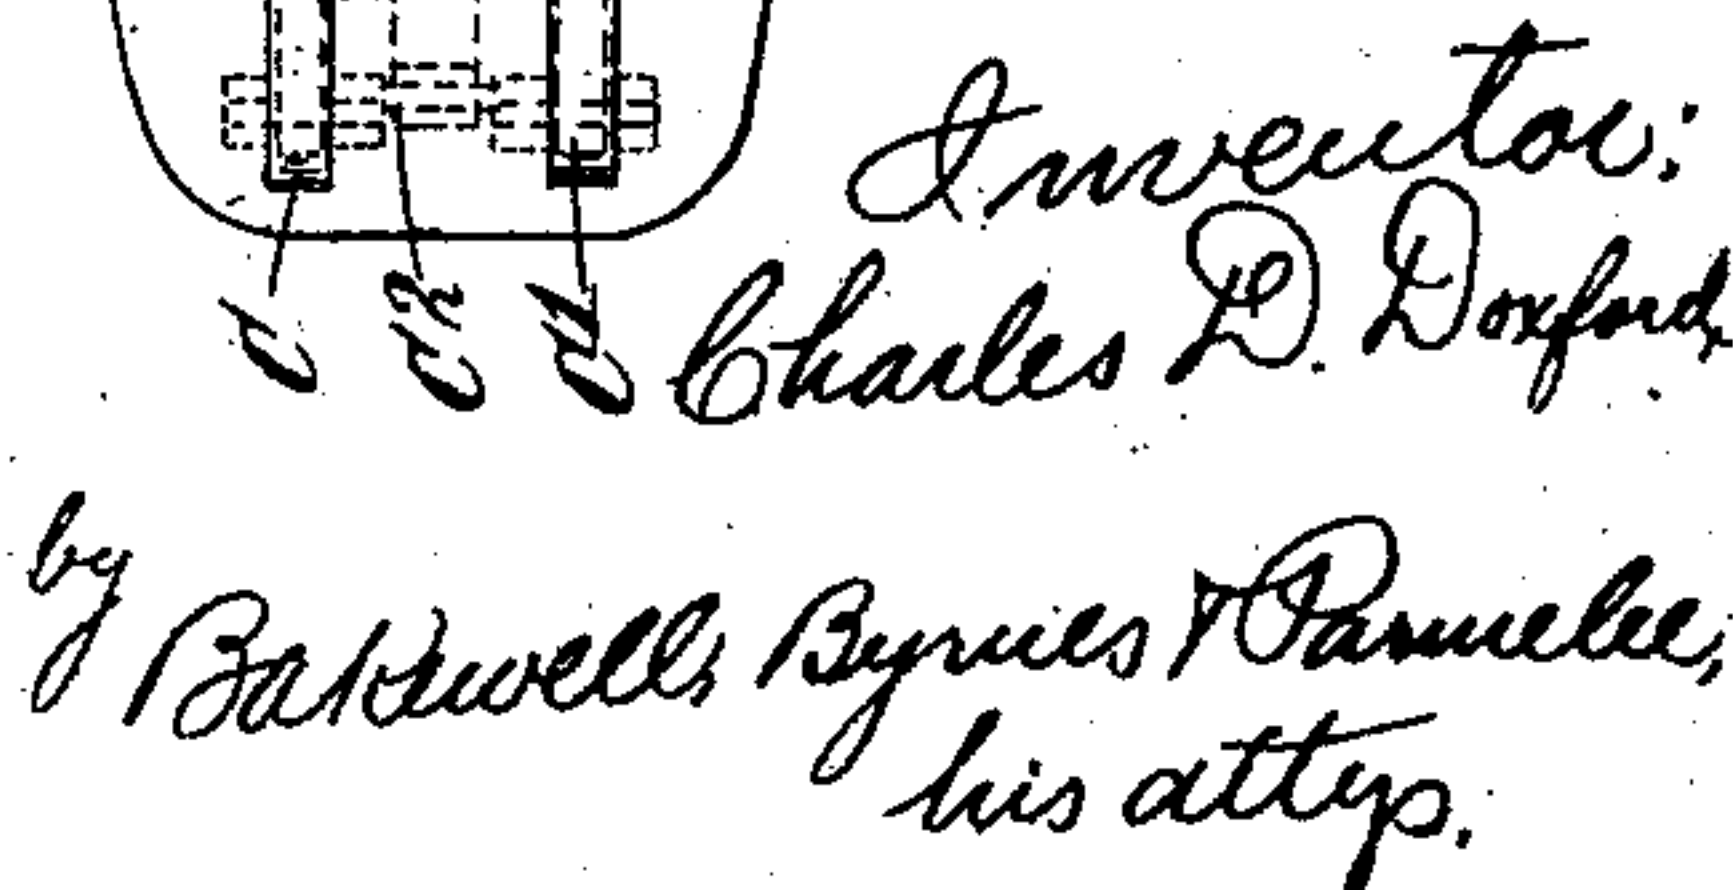 Inventor:
Charles D. Doxford,
by
Bakewell, Byrnes & Parmelee,
his attys.